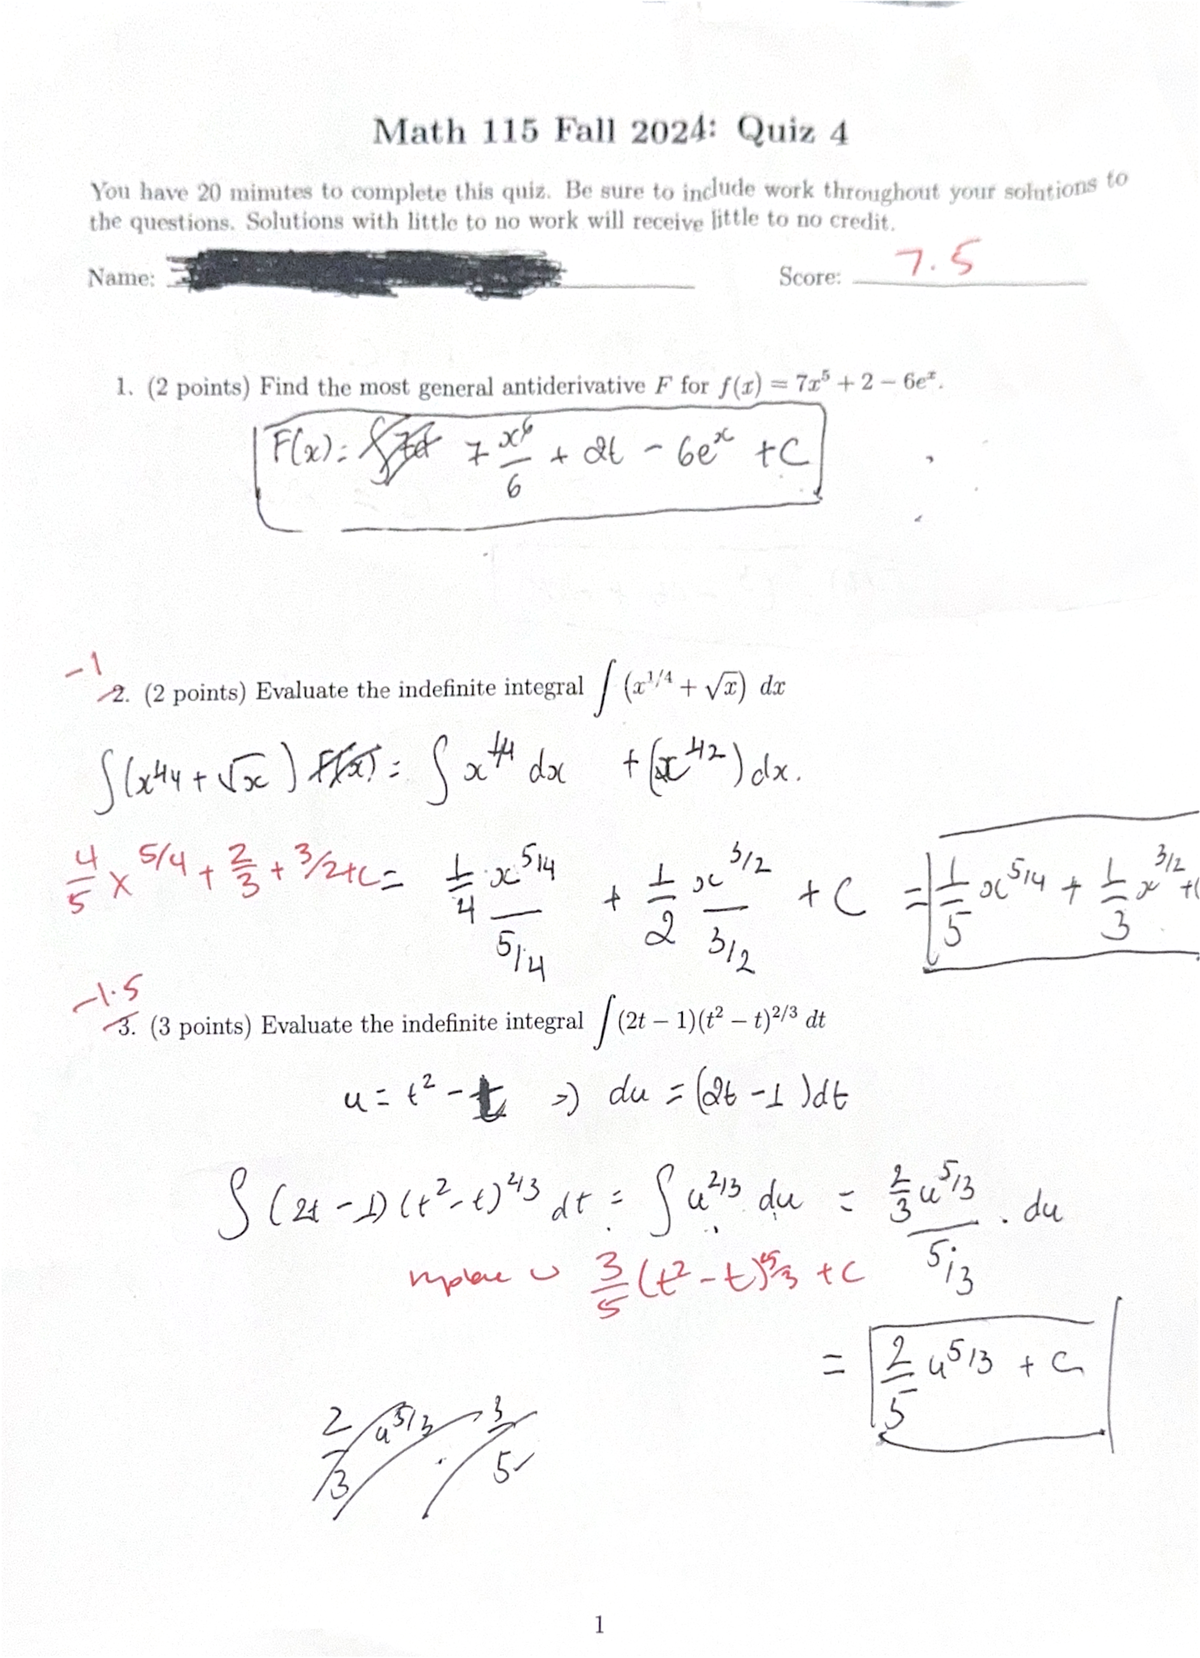 Math 115 Fall 2024: Quiz 4
You have 20 minutes to complete this quiz. Be sure to include work throughout your solutions to
the questions. Solutions with little to no work will receive little to no credit.
Name: Score: 7.5
1. (2 points) Find the most general antiderivative F for f(x) = 7x⁵ + 2 − 6eˣ.
F(x) = 7 x⁶/6 + 2t − 6eˣ + C
−1
2. (2 points) Evaluate the indefinite integral ∫ (x^{1/4} + √x) dx
∫(x^{1/4} + √x) f(x) = ∫ x^{1/4} dx + (x^{1/2}) dx.
4/5 x^{5/4} + 2/3 + 3/2 + C = 1/4 x^{5/4}/(5/4) + 1/2 x^{3/2}/(3/2) + C = 1/5 x^{5/4} + 1/3 x^{3/2} + C
−1.5
3. (3 points) Evaluate the indefinite integral ∫ (2t − 1)(t² − t)^{2/3} dt
u = t² − t ⇒ du = (2t − 1)dt
∫ (2t − 1)(t² − t)^{2/3} dt = ∫ u^{2/3} du = 2/3 u^{5/3}/(5/3) . du
replace u 3/5 (t² − t)^{5/3} + C
= 2/5 u^{5/3} + C
2/3 u^{5/3} . 3/5
1